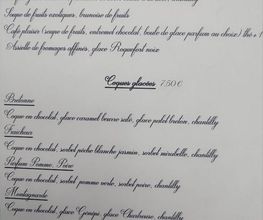 Soupe de fruits exotiques, brunoise de fruits
Café plaisir (soupe de fruits, entremet chocolat, boule de glace parfum au choix) thé + 1
Assiette de fromages affinés, glace Roquefort noix
Coques glacées 7.50€
Bretonne
Coque en chocolat, glace caramel beurre salé, glace palet breton, chantilly
Fraîcheur
Coque en chocolat, sorbet pêche blanche jasmin, sorbet mirabelle, chantilly
Parfum Pomme, Poire
Coque en chocolat, sorbet pomme verte, sorbet poire, chantilly
Montagnarde
Coque en chocolat, glace Génépi, glace Chartreuse, chantilly